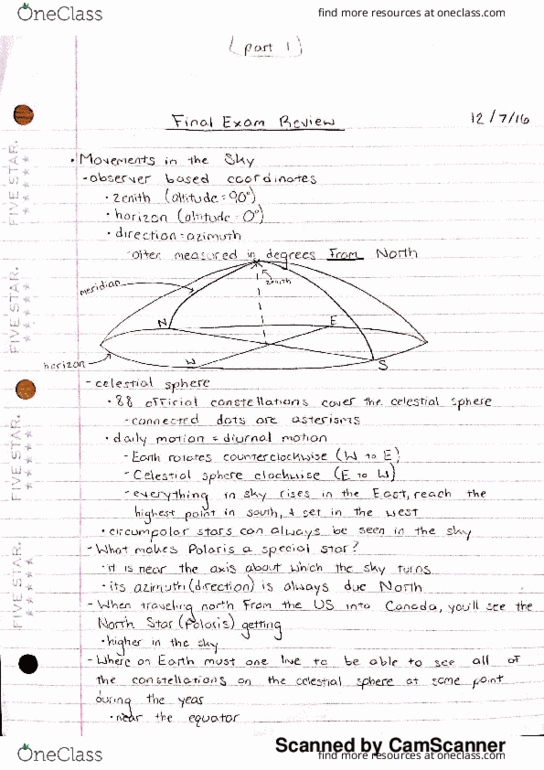 OneClass
find more resources at oneclass.com
(part 1)
Final Exam Review
12/7/16
• Movements in the Sky
- observer based coordinates
• zenith (altitude = 90°)
• horizon (altitude = 0°)
• direction = azimuth
- often measured in degrees From North
meridian
zenith
N
E
W
S
horizon
- celestial sphere
• 88 official constellations cover the celestial sphere
- connected dots are asterisms
• daily motion = diurnal motion
- Earth rotates counterclockwise (W to E)
- Celestial sphere clockwise (E to W)
- everything in sky rises in the East, reach the
highest point in south, & set in the west
• circumpolar stars can always be seen in the sky
- What makes Polaris a special star?
• it is near the axis about which the sky turns
• its azimuth (direction) is always due North
- When traveling north From the US into Canada, you'll see the
North Star (Polaris) getting
• higher in the sky
- Where on Earth must one live to be able to see all of
the constellations on the celestial sphere at some point
during the year
• near the equator
FIVE STAR.
FIVE STAR.
FIVE STAR.
FIVE STAR.
OneClass
Scanned by CamScanner
find more resources at oneclass.com